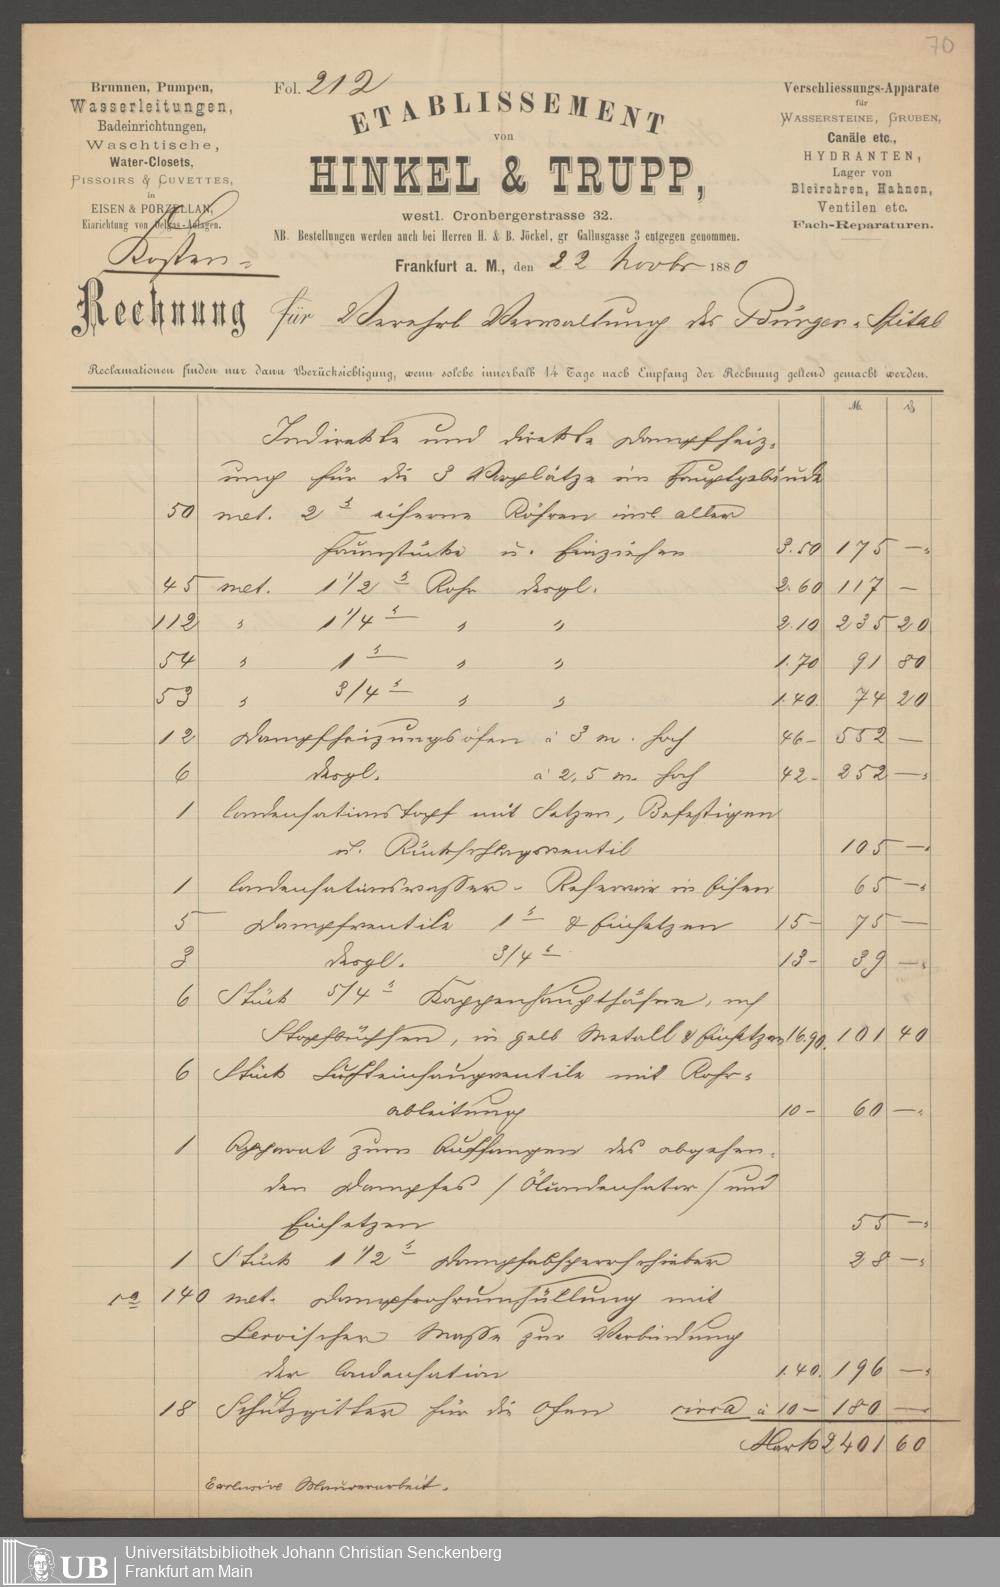 70
Brunnen, Pumpen,
Wasserleitungen,
Badeinrichtungen,
Waschtische,
Water-Closets,
PISSOIRS & CUVETTES,
in
EISEN & PORZELLAN,
Einrichtung von Oelgas-Anlagen.
Fol. 212
ETABLISSEMENT
von
HINKEL & TRUPP,
westl. Cronbergerstrasse 32.
NB. Bestellungen werden auch bei Herren H. & B. Jöckel, gr Gallusgasse 3 entgegen genommen.
Verschliessungs-Apparate
für
WASSERSTEINE, GRUBEN,
Canäle etc.,
HYDRANTEN,
Lager von
Bleirohren, Hahnen,
Ventilen etc.
Fach-Reparaturen.
Frankfurt a. M., den 22 Novbr 1880
Kosten-
Rechnung für Verehrl Verwaltung des Bürger-Spital
Reclamationen finden nur dann Berücksichtigung, wenn solche innerhalb 14 Tage nach Empfang der Rechnung geltend gemacht werden.
M. ₰
Indirekte und direkte Dampfheiz-
ung für die 3 Vorplätze im Hauptgebäude
50 met. 2" eiserne Röhren incl aller
Façonstücke u. Einziehen 3.50 175 —
45 met. 1 1/2" Rohr desgl. 2.60 117 —
112 " 1 1/4" " " 2.10 235 20
54 " 1" " " 1.70 91 80
53 " 3/4" " " 1.40. 74 20
12 Dampfheizungsöfen à 3 m. hoch 46- 552 —
6 desgl. à 2,5 m. hoch 42- 252 —
1 Condensationstopf mit Setzen, Befestigen
u. Rückschlagsventil 105 —
1 Condensationswasser-Reservoir in Eisen 65 —
5 Dampfventile 1" & Einsetzen 15- 75 —
3 desgl. 3/4" 13- 39 —
6 Stück 5/4" Kappenhaupthähne, m
Stopfbüchsen, in gelb Metall & Einsetzen 16.90. 101 40
6 Stück Lufteinsaugventile mit Rohr-
ableitung 10- 60 —
1 Apparat zum Auffangen des abgehen-
den Dampfes / Ölcondensator / und
Einsetzen 55 —
1 Stück 1 1/2" Dampfabsperrschieber 28 —
1a 140 met. Dampfrohrumhüllung mit
Leroischer Masse zur Verbindung
der Condensation 1.40. 196 —
18 Schutzgitter für die Öfen circa à 10- 180 —
Mark 2401 60
Exclusive Maurerarbeit.
UB
Universitätsbibliothek Johann Christian Senckenberg
Frankfurt am Main